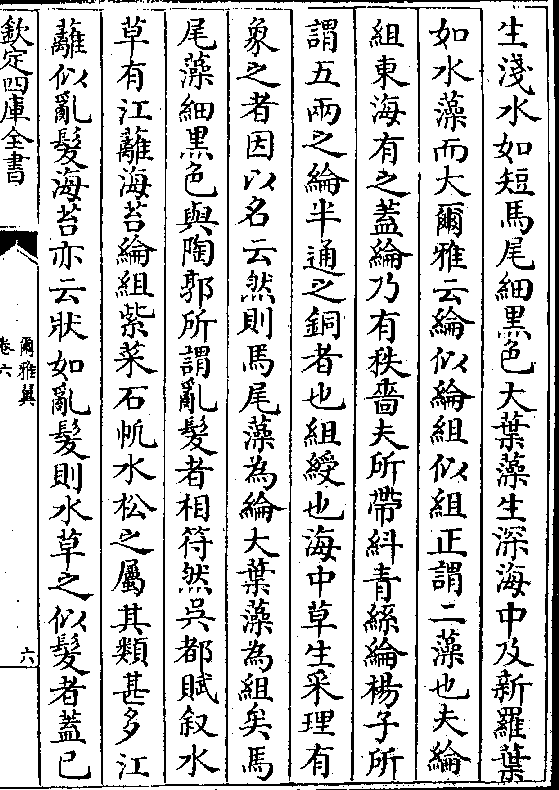 生淺水如短馬尾細黑色大葉藻生深海中及新羅葉
如水藻而大爾雅云綸似綸組似組正謂二藻也夫綸
組東海有之蓋綸乃有秩嗇夫所帶糾青絲綸楊子所
謂五兩之綸半通之銅者也組綬也海中草生采理有
象之者因以名云然則馬尾藻為綸大葉藻為組矣馬
尾藻細黑色與陶郭所謂亂髮者相符然吳都賦叙水
草有江蘺海苔綸組紫菜石帆水松之屬其類甚多江
蘺似亂髮海苔亦云狀如亂髮則水草之似髮者蓋已
欽定四庫全書
爾雅翼
卷六
六